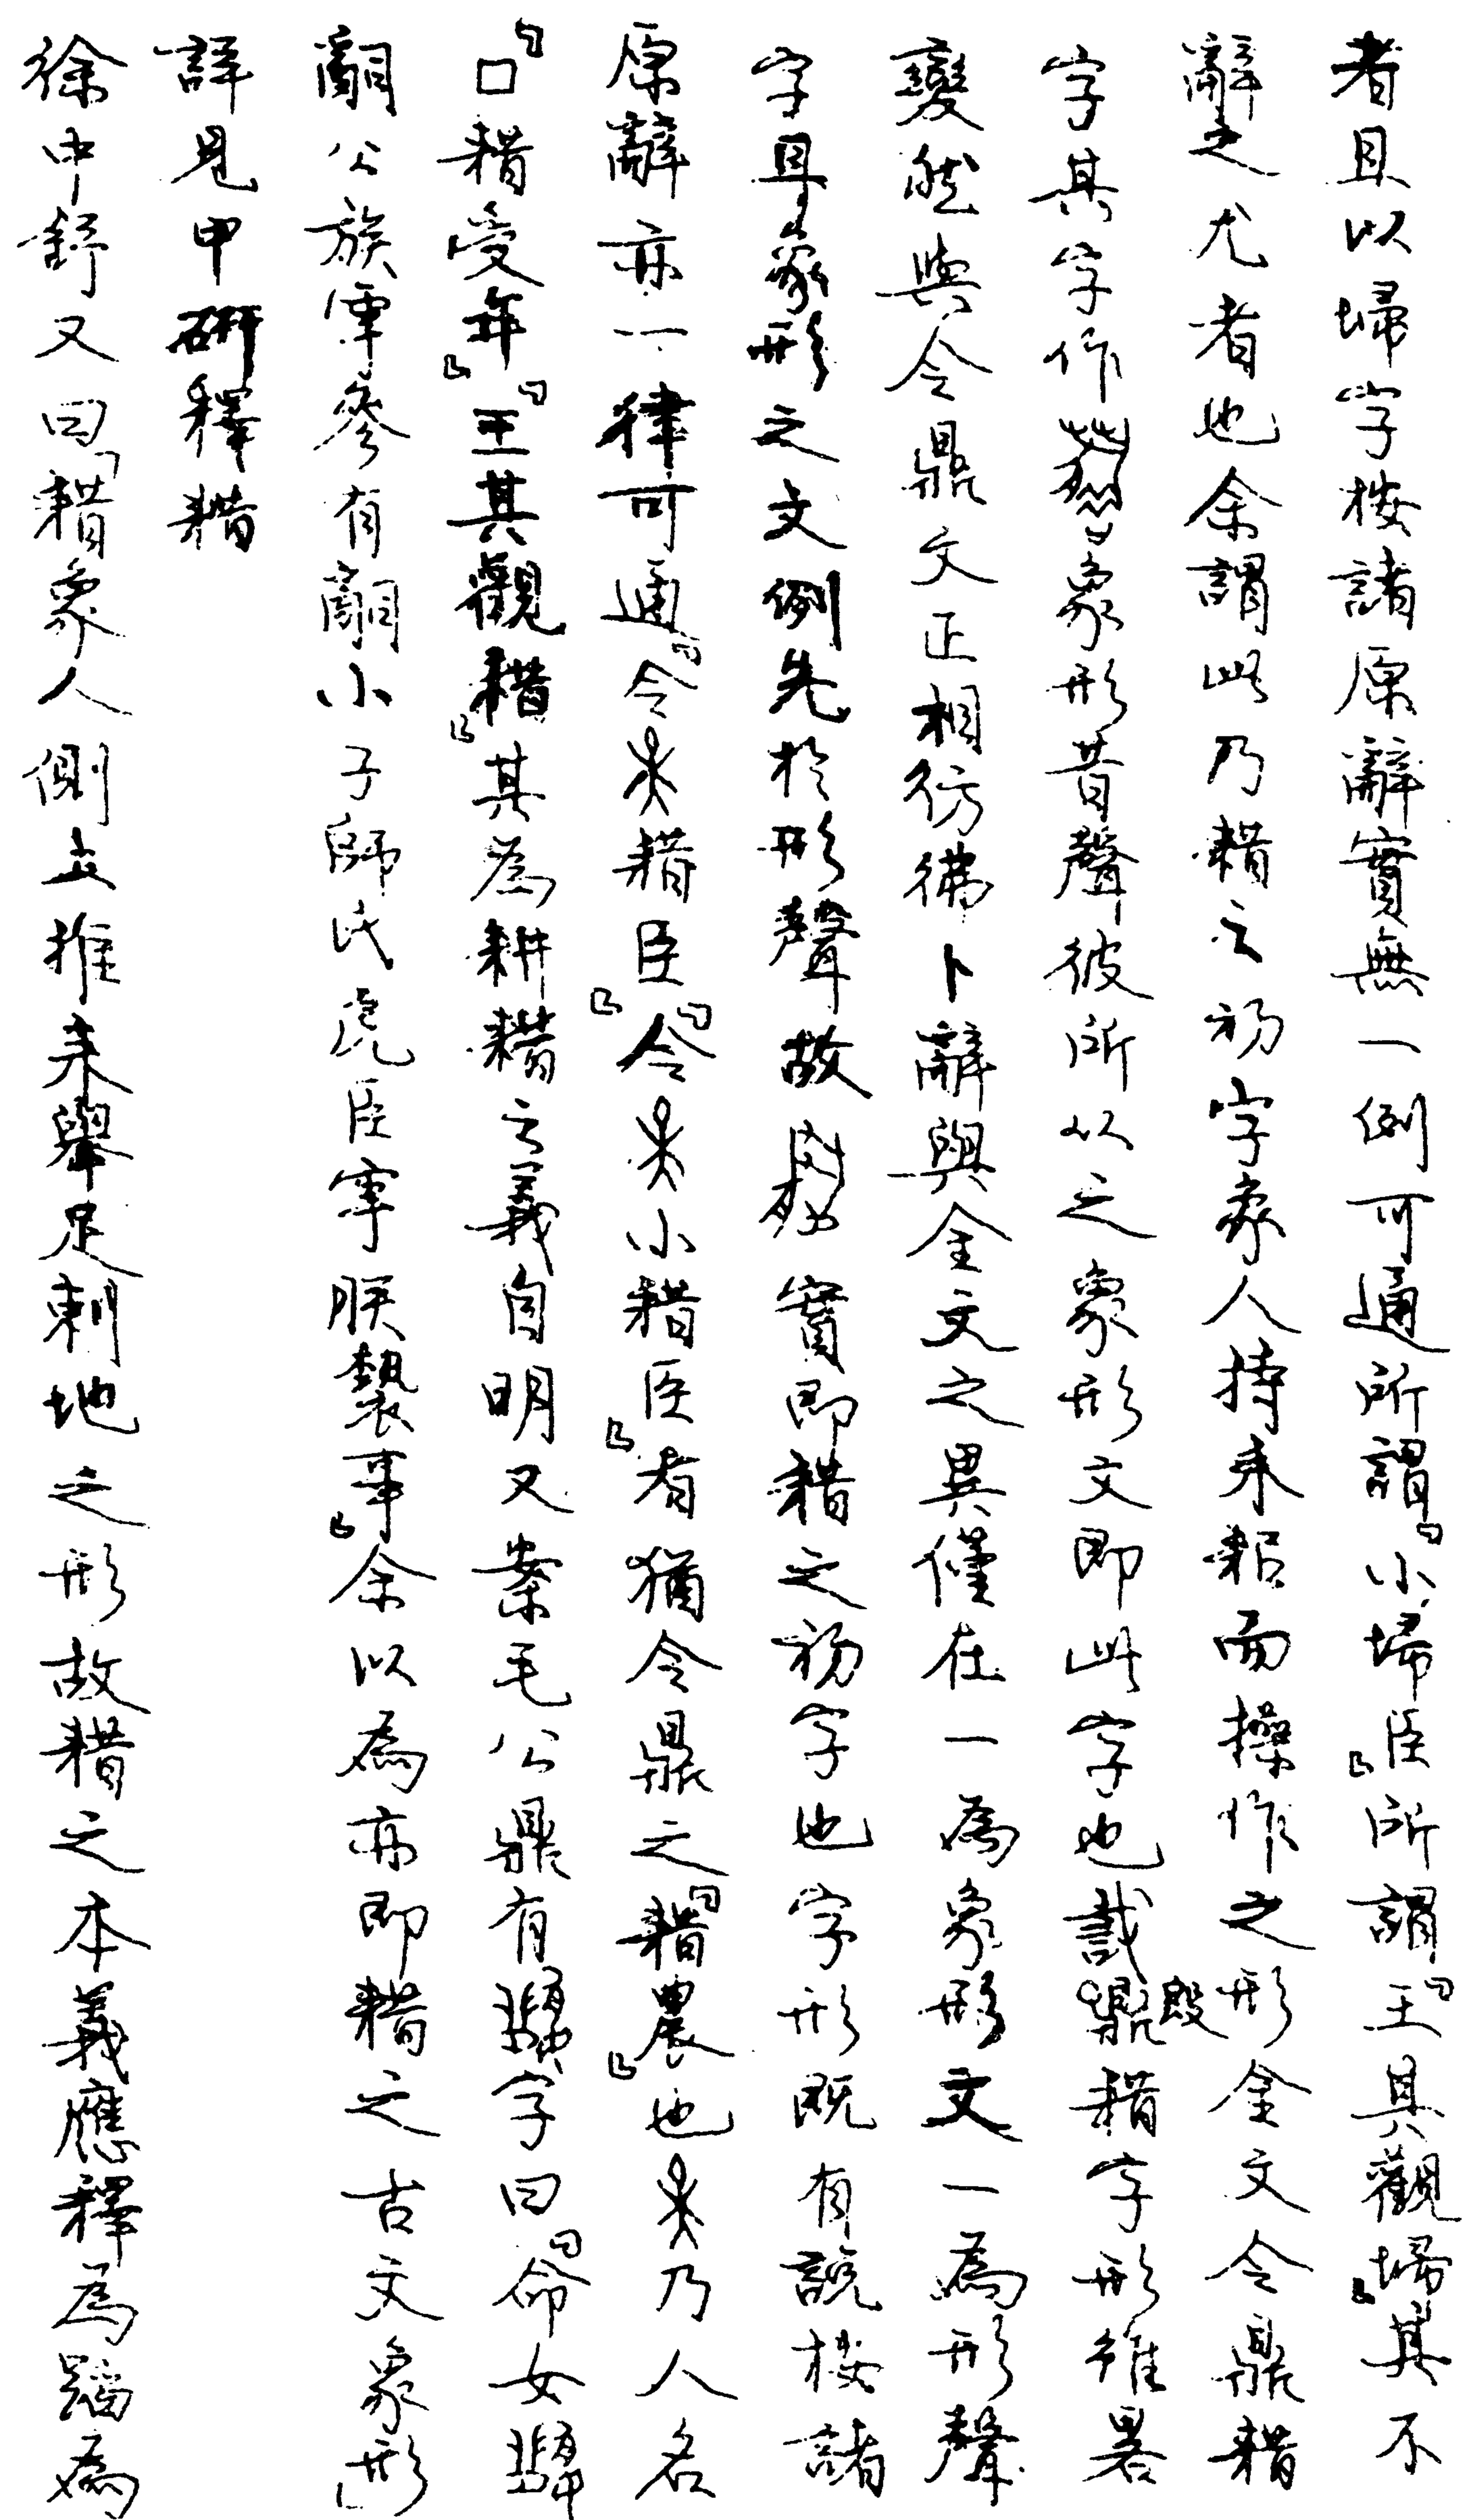 者且以埽字按諸原辭實無一例可通所謂「小埽臣」所謂「王其觀埽」其不
辭之尤者也余謂此乃耤之初字象人持耒耜而操作之形金文令鼎耤
字其字作象形昔聲彼所以之象形文即此字也𢦚鼎𣪘耤字形雖畧
變然與令鼎文正相彷彿卜辭與金文之異僅在一為象形文一為形聲
字耳象形之文例先於形聲故實即耤之初字也字形既有說按諸
原辭亦一律可通「令耤臣」「令小耤臣」者猶令鼎之「耤農」也乃人名
「□耤受年」「王其觀耤」其為耕耤之義自明又案毛公鼎有字曰「命女
𤔲公族雩參有𤔲小子師氏虎臣雩朕褻事」余以為亦即耤之古文象形」
詳見甲研釋耤
徐中舒又曰「耤象人側立推耒舉足刺地之形故耤之本義應釋為蹈為